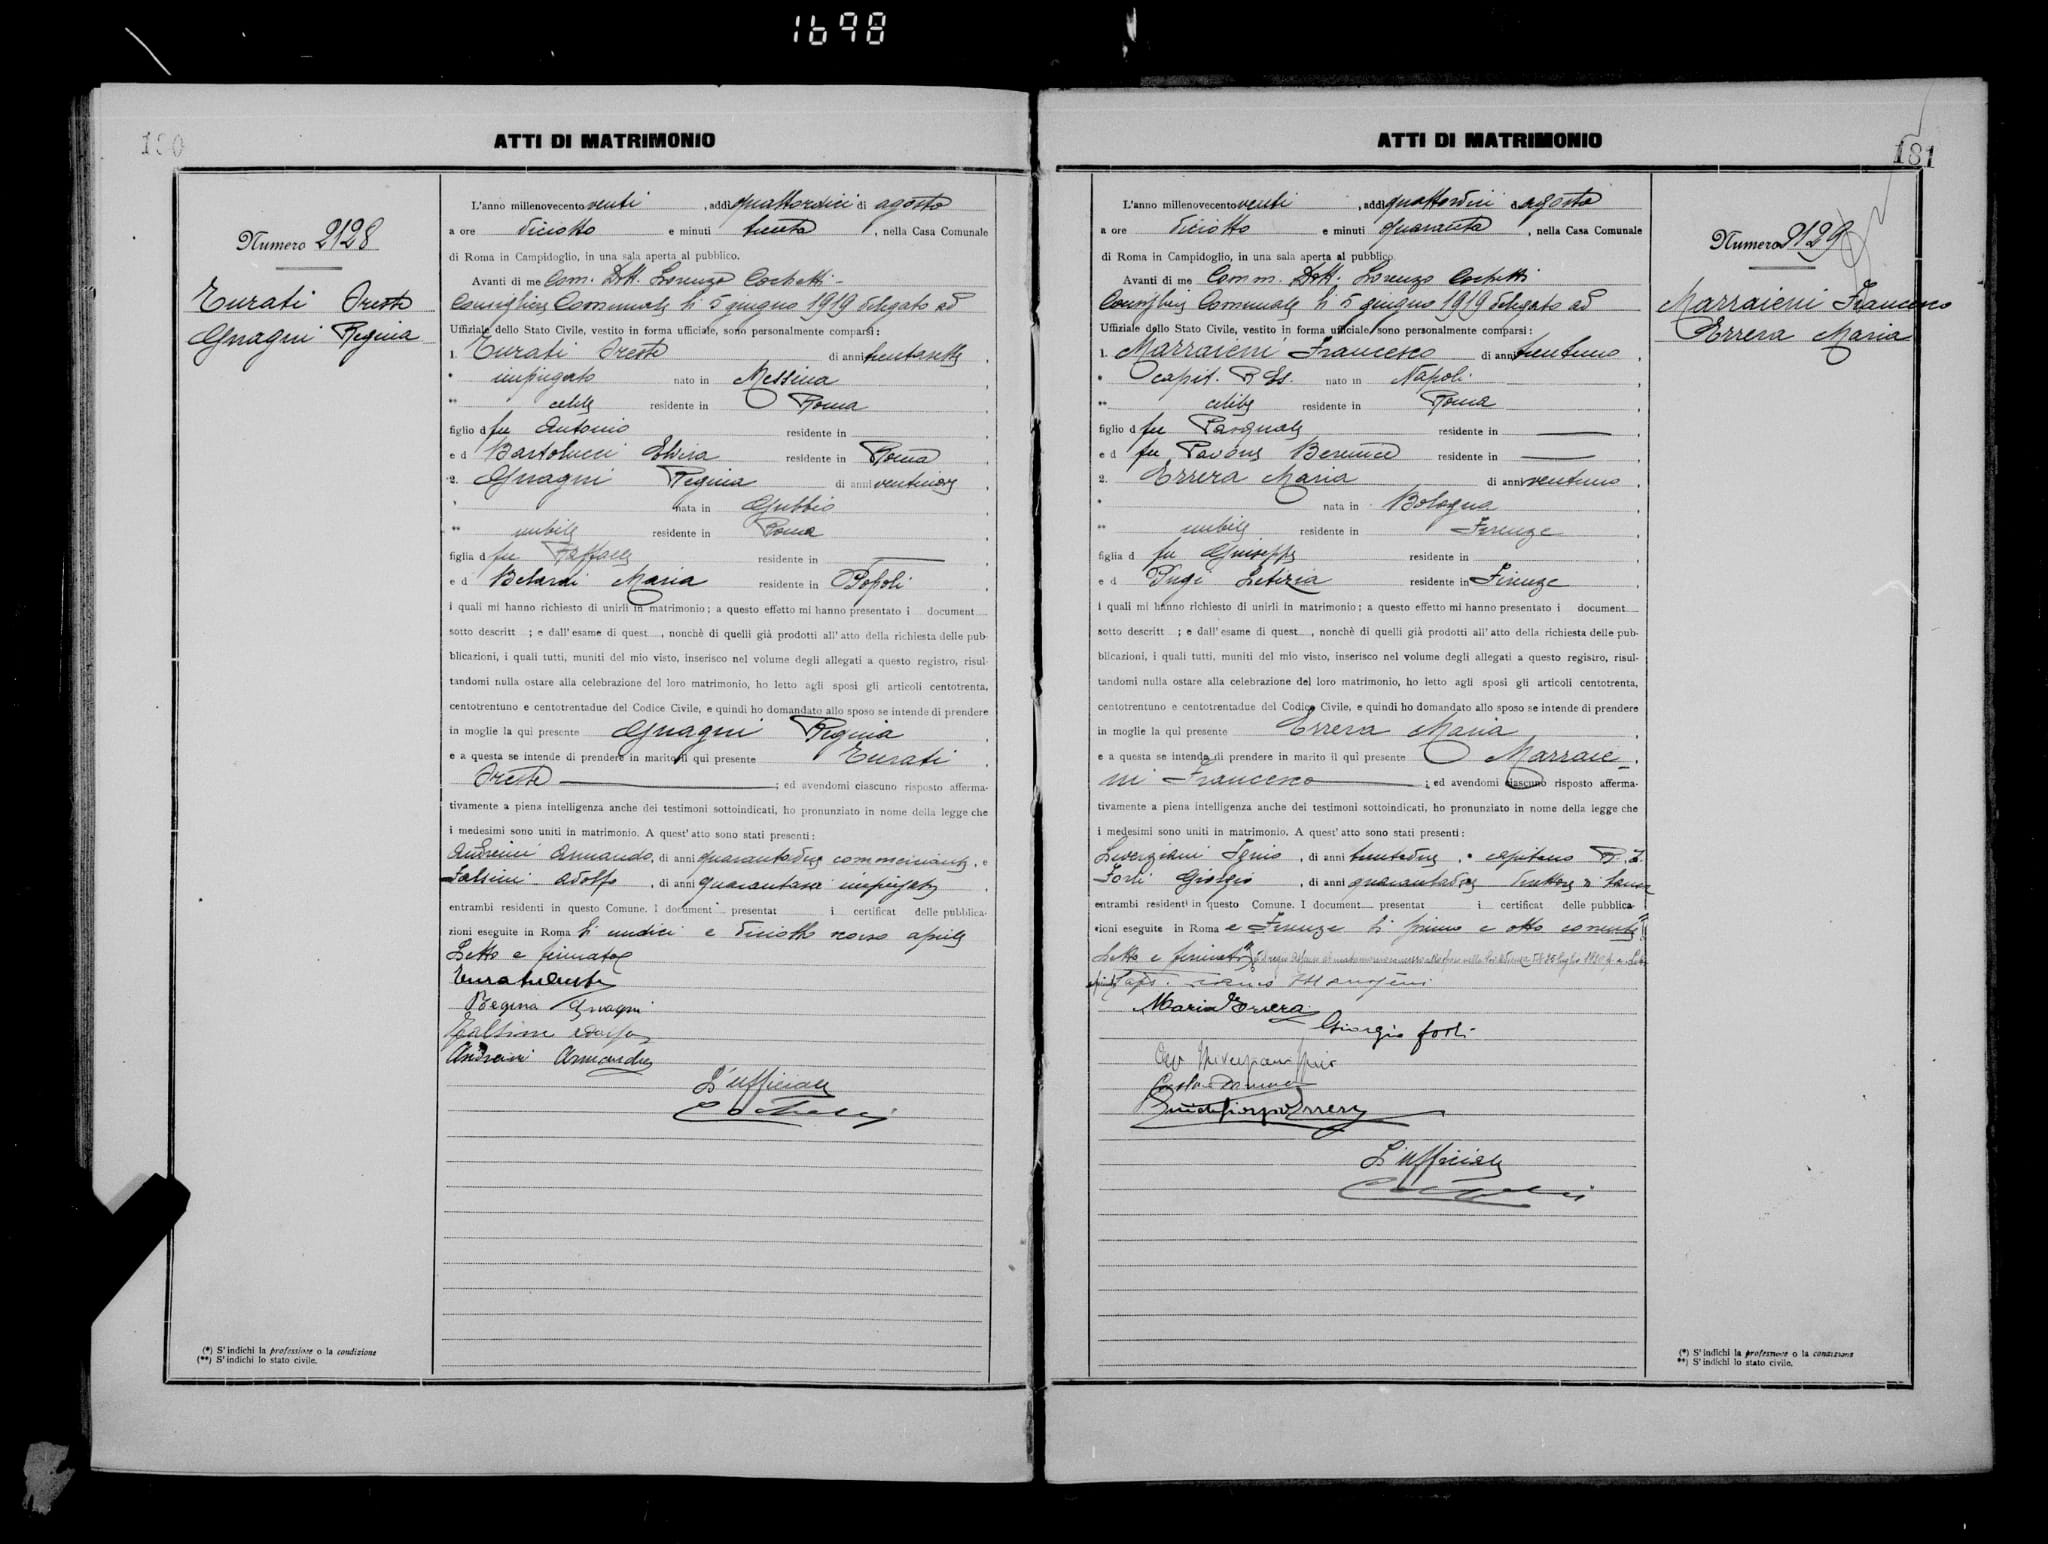 1698
180
ATTI DI MATRIMONIO
Numero 2128
Turati Oreste
Gnagni Regina
L'anno millenovecento venti , addì quattordici di agosto
a ore diciotto e minuti trenta , nella Casa Comunale
di Roma in Campidoglio, in una sala aperta al pubblico.
Avanti di me Com. Dott. Lorenzo Cochetti
Consigliere Comunale li 5 giugno 1919 delegato ad
Uffiziale dello Stato Civile, vestito in forma ufficiale, sono personalmente comparsi:
1. Turati Oreste di anni trentasette ,
* impiegato nato in Messina ,
** celibe residente in Roma ,
figlio di fu Antonio residente in ,
e d Bartolucci Elvira residente in Roma ,
2. Gnagni Regina di anni ventinove ,
* nata in Gubbio ,
** nubile residente in Roma ,
figlia d fu Raffaele residente in — ,
e d Belardi Maria residente in Popoli ,
i quali mi hanno richiesto di unirli in matrimonio; a questo effetto mi hanno presentato i document
sotto descritt ; e dall'esame di quest , nonchè di quelli già prodotti all'atto della richiesta delle pub-
blicazioni, i quali tutti, muniti del mio visto, inserisco nel volume degli allegati a questo registro, risul-
tandomi nulla ostare alla celebrazione del loro matrimonio, ho letto agli sposi gli articoli centotrenta,
centotrentuno e centotrentadue del Codice Civile, e quindi ho domandato allo sposo se intende di prendere
in moglie la qui presente Gnagni Regina ,
e a questa se intende di prendere in marito il qui presente Turati
Oreste — ; ed avendomi ciascuno risposto afferma-
tivamente a piena intelligenza anche dei testimoni sottoindicati, ho pronunziato in nome della legge che
i medesimi sono uniti in matrimonio. A quest'atto sono stati presenti:
Andreini Armando, di anni quarantadue commerciante, e
Falsini Adolfo, di anni quarantasei impiegato ,
entrambi residenti in questo Comune. I document presentat i certificat delle pubblica-
zioni eseguite in Roma li undici e diciotto scorso aprile
Letto e firmato
Turati Oreste
Regina Gnagni
Falsini Adolfo
Andreini Armando
L'ufficiale
Cochetti
(*) S'indichi la professione o la condizione
(**) S'indichi lo stato civile.
ATTI DI MATRIMONIO
181
Numero 2129
Marraieni Francesco
Errera Maria
L'anno millenovecento venti , addì quattordici d agosto
a ore diciotto e minuti quaranta , nella Casa Comunale
di Roma in Campidoglio, in una sala aperta al pubblico.
Avanti di me Comm. Dott. Lorenzo Cochetti
Consigliere Comunale li 5 giugno 1919 delegato ad
Uffiziale dello Stato Civile, vestito in forma ufficiale, sono personalmente comparsi:
1. Marraieni Francesco di anni trentuno ,
* capit. R. Es. nato in Napoli ,
** celibe residente in Roma ,
figlio d fu Pasquale residente in — ,
e d fu Pavone Berenice residente in — ,
2. Errera Maria di anni ventuno ,
* nata in Bologna ,
** nubile residente in Firenze ,
figlia d fu Giuseppe residente in ,
e d Pugi Letizia residente in Firenze ,
i quali mi hanno richiesto di unirli in matrimonio; a questo effetto mi hanno presentato i document
sotto descritt ; e dall'esame di quest , nonchè di quelli già prodotti all'atto della richiesta delle pub-
blicazioni, i quali tutti, muniti del mio visto, inserisco nel volume degli allegati a questo registro, risul-
tandomi nulla ostare alla celebrazione del loro matrimonio, ho letto agli sposi gli articoli centotrenta,
centotrentuno e centotrentadue del Codice Civile, e quindi ho domandato allo sposo se intende di prendere
in moglie la qui presente Errera Maria ,
e a questa se intende di prendere in marito il qui presente Marraie-
ni Francesco — ; ed avendomi ciascuno risposto afferma-
tivamente a piena intelligenza anche dei testimoni sottoindicati, ho pronunziato in nome della legge che
i medesimi sono uniti in matrimonio. A quest'atto sono stati presenti:
di anni trentadue, capitano R.
Forti Giorgio , di anni quarantadue direttore di banca
entrambi residenti in questo Comune. I document presentat i certificat delle pubblica-
zioni eseguite in Roma e Firenze li primo e otto corrente
Letto e firmato
Maria Errera
Giorgio Forti
L'ufficiale
Cochetti
(*) S'indichi la professione o la condizione
**) S'indichi lo stato civile.